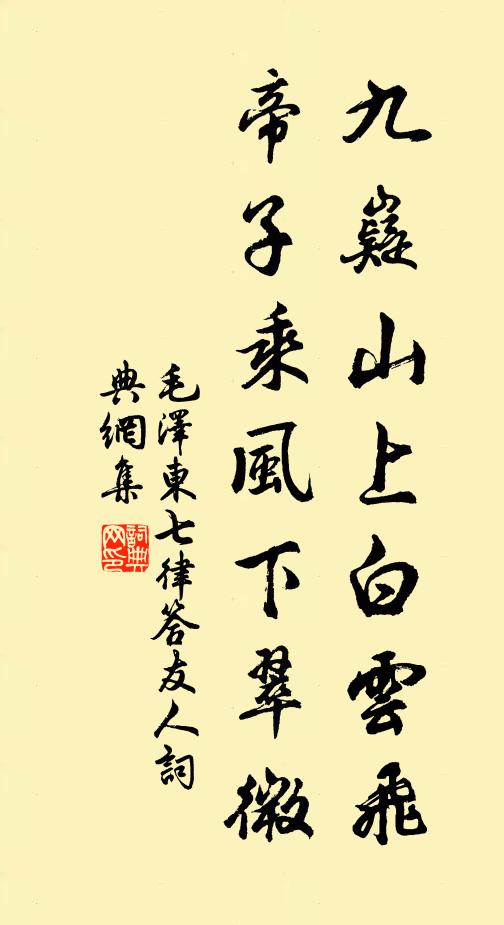 九嶷山上白雲飛
帝子乘風下翠微
毛澤東七律答友人詞
典網集
詞典
网印